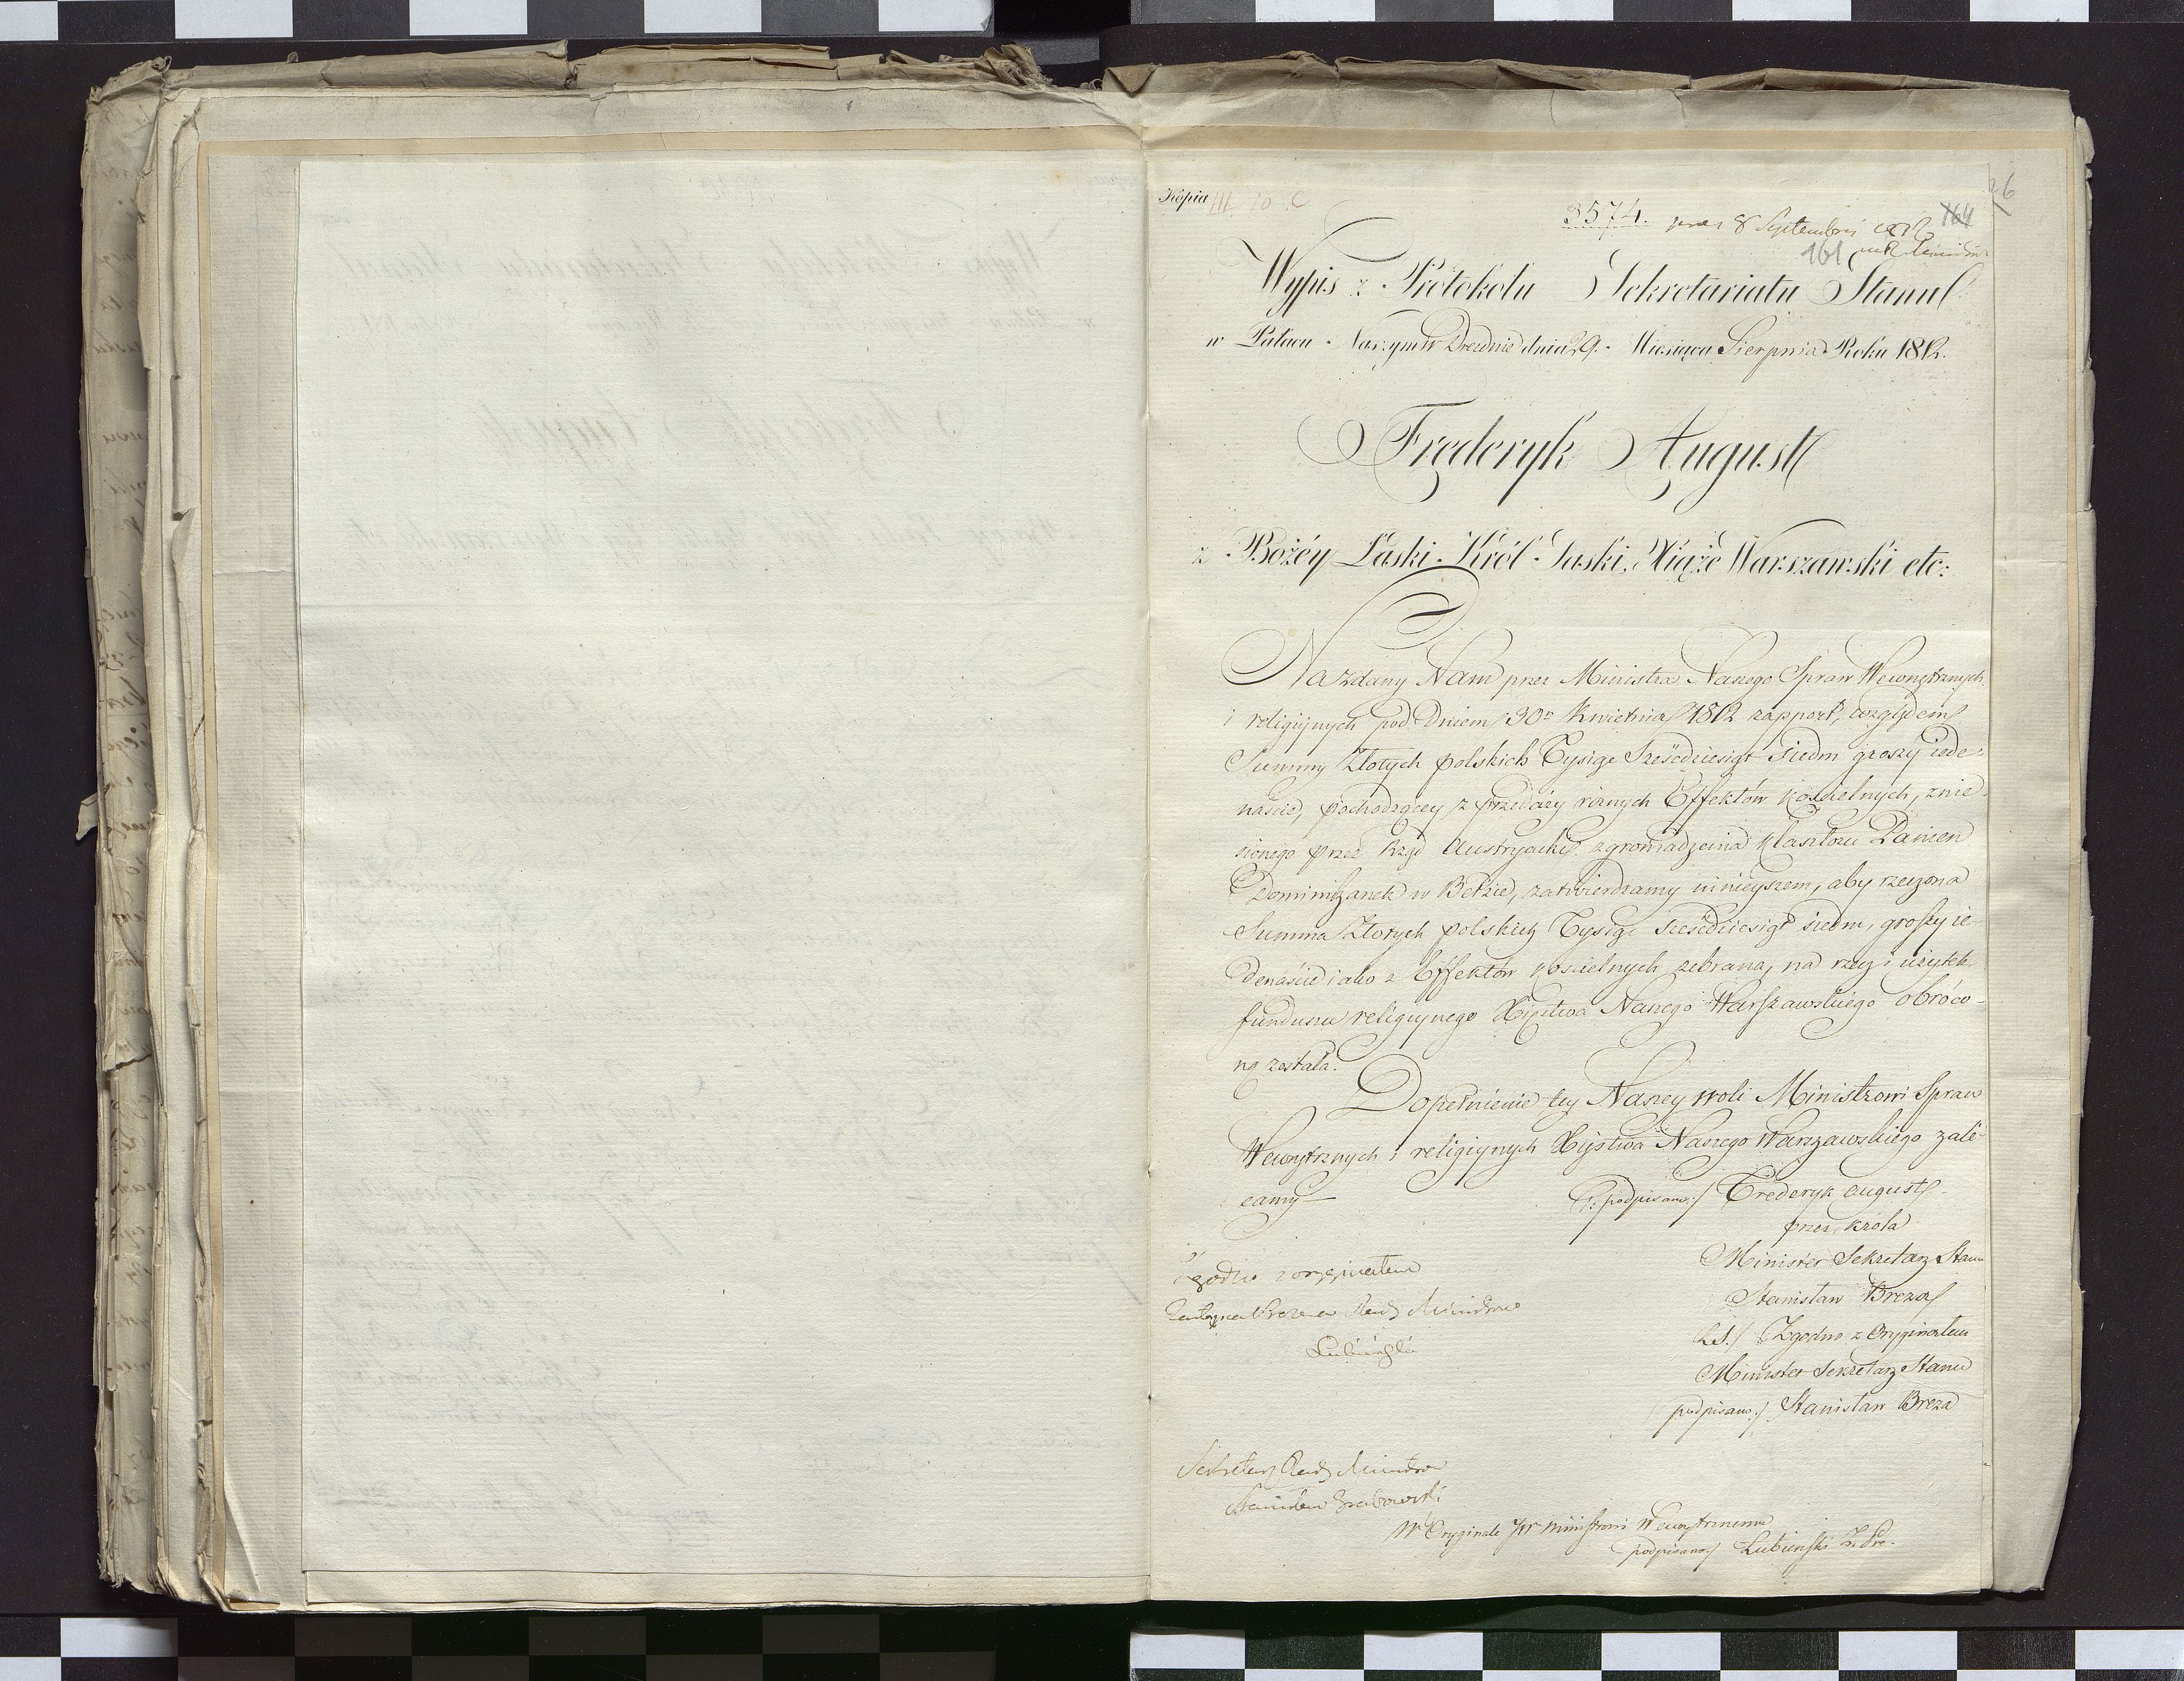 Kopia III 10 C
26
8574. pres 8 Septembris 1812 164
161
Wypis z Protokołu Sekretariatu Stanu
w Pałacu Naszym w Dreźnie dnia 29. Miesiąca Sierpnia Roku 1812.
Fryderyk August
z Bożéy Łaski Król Saski, Xiążę Warszawski etc:
Na zdany Nam przez Ministra Naszego Spraw Wewnętrznych
i religiynych pod Dniem 30n Kwietnia 1812 rapport, względem
Summy Złotych polskich Tysiąc Sześćdziesiąt siedm groszy iede-
naście, pochodzącey z przedaży różnych Effektów kościelnych, znie-
sionego przez Rząd Austryacki zgromadzenia klasztoru Panien
Dominikanek w Bełzie, zatwierdzamy ninieyszem, aby rzeczona
Summa Złotych polskich Tysiąc sześćdziesiąt siedm, groszy ie-
denaście iako z Effektów kościelnych zebrana, na rzecz i użytek
funduszu religiynego Xięstwa Naszego Warszawskiego obróco-
ną została.
Dopełnienie tey Naszey woli Ministrowi Spraw
Wewnętrznych i religiynych Xięstwa Naszego Warszawskiego zale-
camy —
/: podpisano :/ Frederyk August
przez Króla
Minister Sekretarz Stanu
Stanisław Breza
L.S./ Zgodno z Oryginałem
Minister Sekretarz Stanu
podpisano :/ Stanisław Breza
Zgodno z oryginałem
Zastępca Prezesa Rady Ministrów
Łubieński
Sekretarz Rady Ministrów
Stanisław Grabowski
W Oryginale JW Ministrowi Wewnętrznemu
podpisano :/ Łubieński Z. Pre.